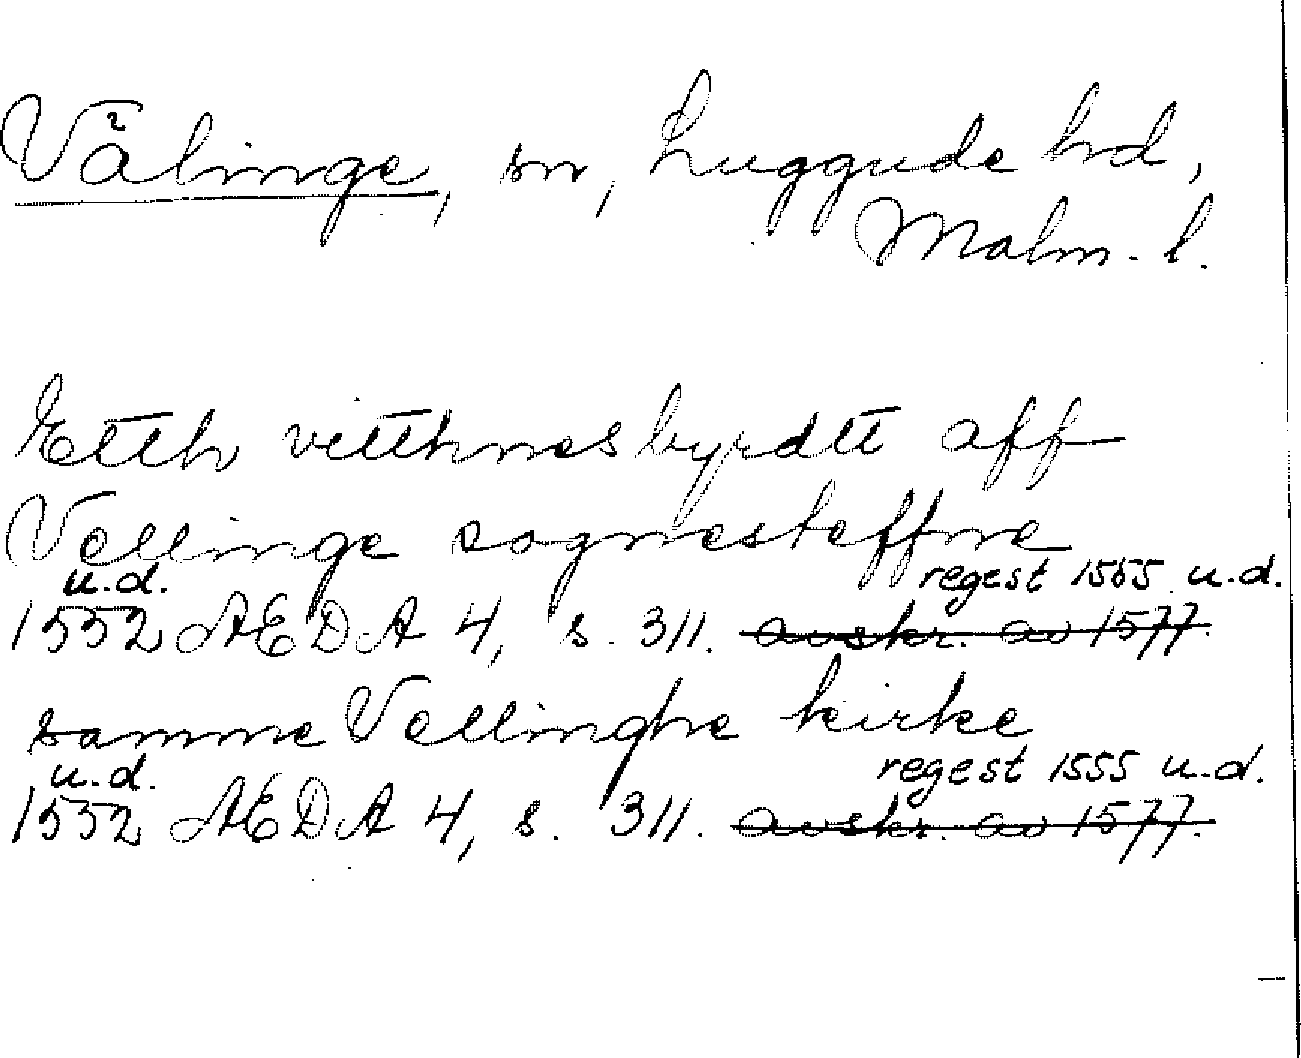 Välinge, sn, Luggude hd,
Malm. l.
Etth vitthnesbyrdtt aff
Vellinge sognesteffne
u.d. regest 1555 u.d.
1552 AEDA 4, s. 311. avskr. av 1577.
samme Vellinghe kirke
u.d. regest 1555 u.d.
1552 AEDA 4, s. 311. avskr. av 1577.